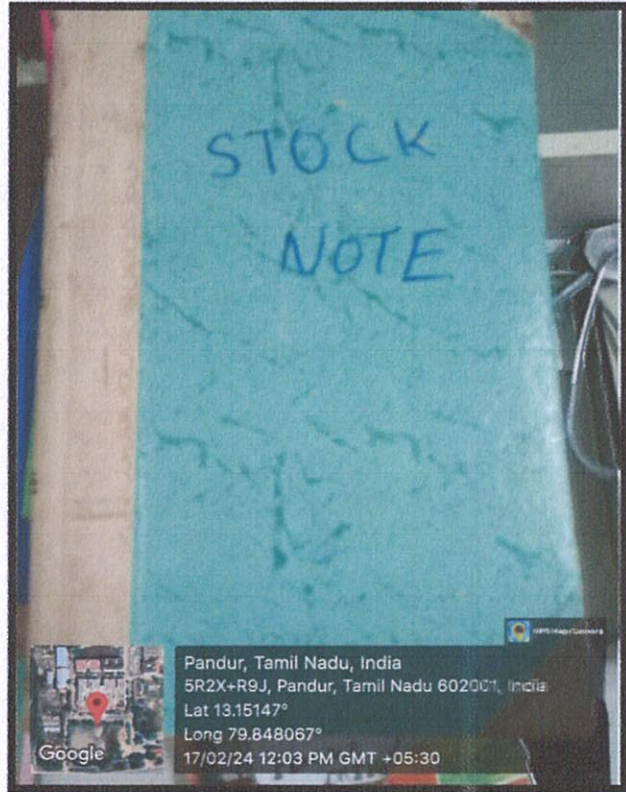 STOCK
NOTE
GPS Map Camera
Pandur, Tamil Nadu, India
5R2X+R9J, Pandur, Tamil Nadu 602001, India
Lat 13.15147°
Long 79.848067°
17/02/24 12:03 PM GMT +05:30
Google